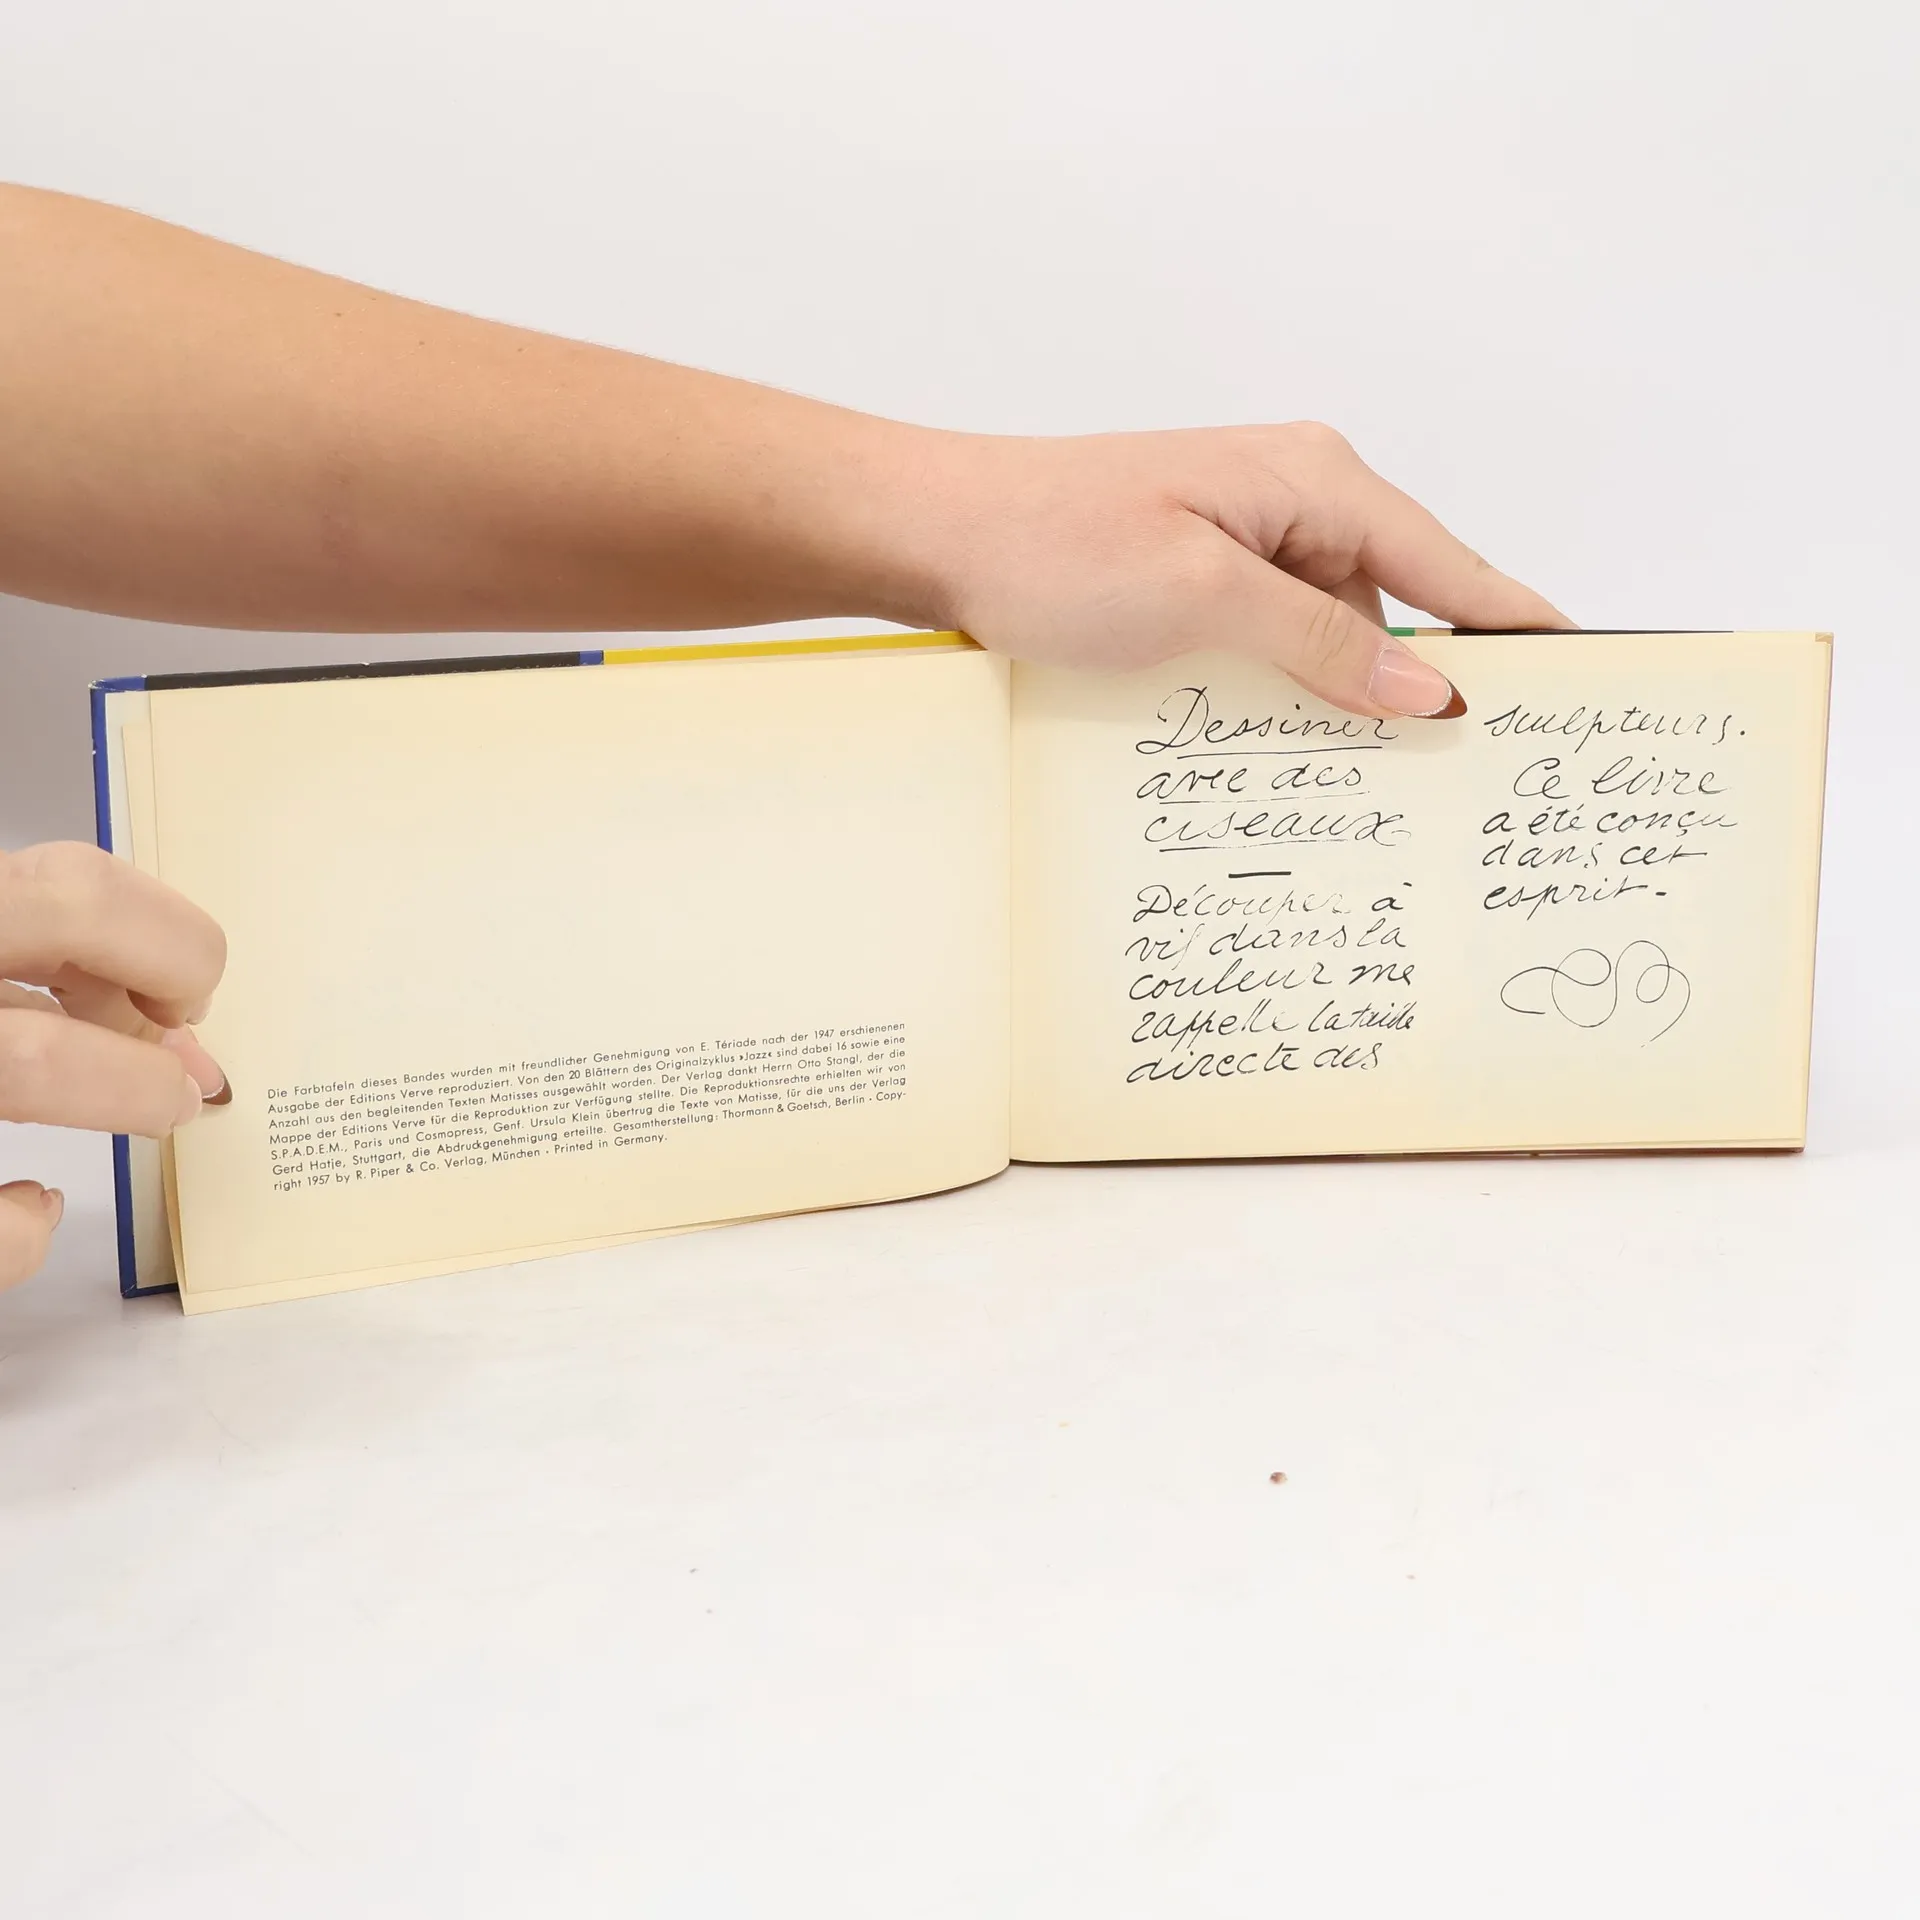 Die Farbtafeln dieses Bandes wurden mit freundlicher Genehmigung von E. Tériade nach der 1947 erschienenen
Ausgabe der Editions Verve reproduziert. Von den 20 Blättern des Originalzyklus »Jazz« sind dabei 16 sowie eine
Anzahl aus den begleitenden Texten Matisses ausgewählt worden. Der Verlag dankt Herrn Otto Stangl, der die
Mappe der Editions Verve für die Reproduktion zur Verfügung stellte. Die Reproduktionsrechte erhielten wir von
S.P.A.D.E.M., Paris und Cosmopress, Genf. Ursula Klein übertrug die Texte von Matisse, für die uns der Verlag
Gerd Hatje, Stuttgart, die Abdruckgenehmigung erteilte. Gesamtherstellung: Thormann & Goetsch, Berlin · Copy-
right 1957 by R. Piper & Co. Verlag, München · Printed in Germany.
Dessiner
avec des
ciseaux
Découper à
vif dans la
couleur me
rappelle la taille
directe des
sculpteurs.
Ce livre
a été conçu
dans cet
esprit.